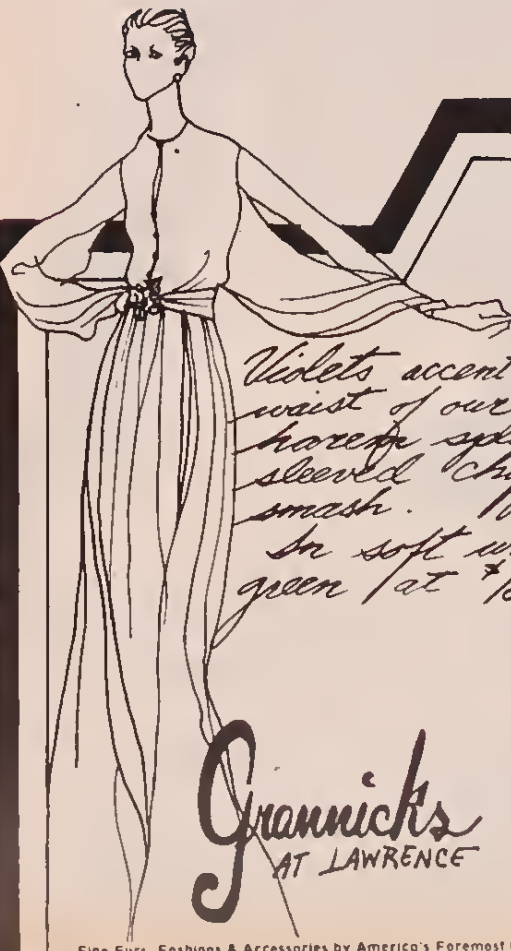 Violets accent
waist of our
harem
sleeved
smash.
In soft
green at $
Grannicks
AT LAWRENCE
Fine Furs, Fashions & Accessories by America's Foremost